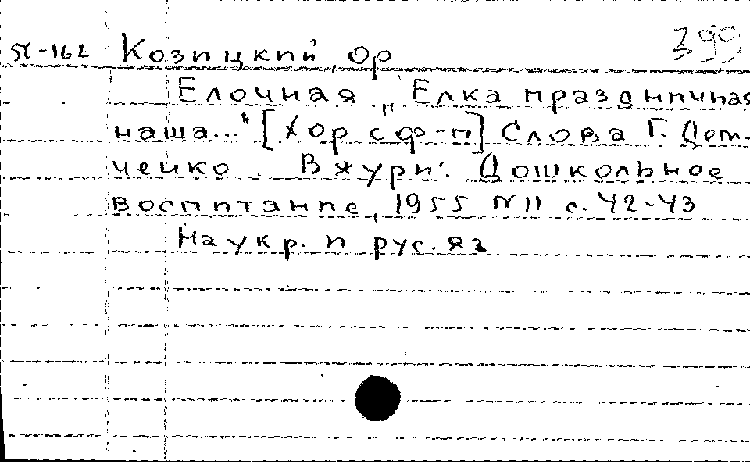 399
51-162 Козицкий, Ор
Елочная „Елка празднична
наша..." [Хор с ф-п] Слова Г. Дем-
ченко. В журн: Дошкольное
воспитание, 1955 №11 с. 42-43
На укр. и рус. яз